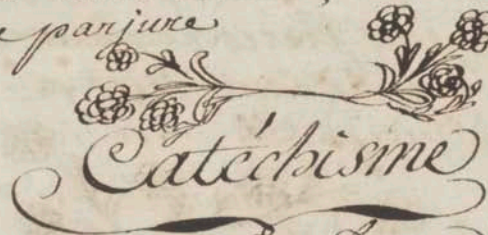 parjure
Catéchisme